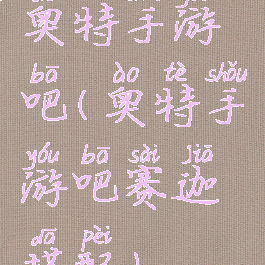 奥特手游
bā ào tè shǒu
吧(奥特手
yóu bā sài jiā
游吧赛迦
dā pèi
搭配)